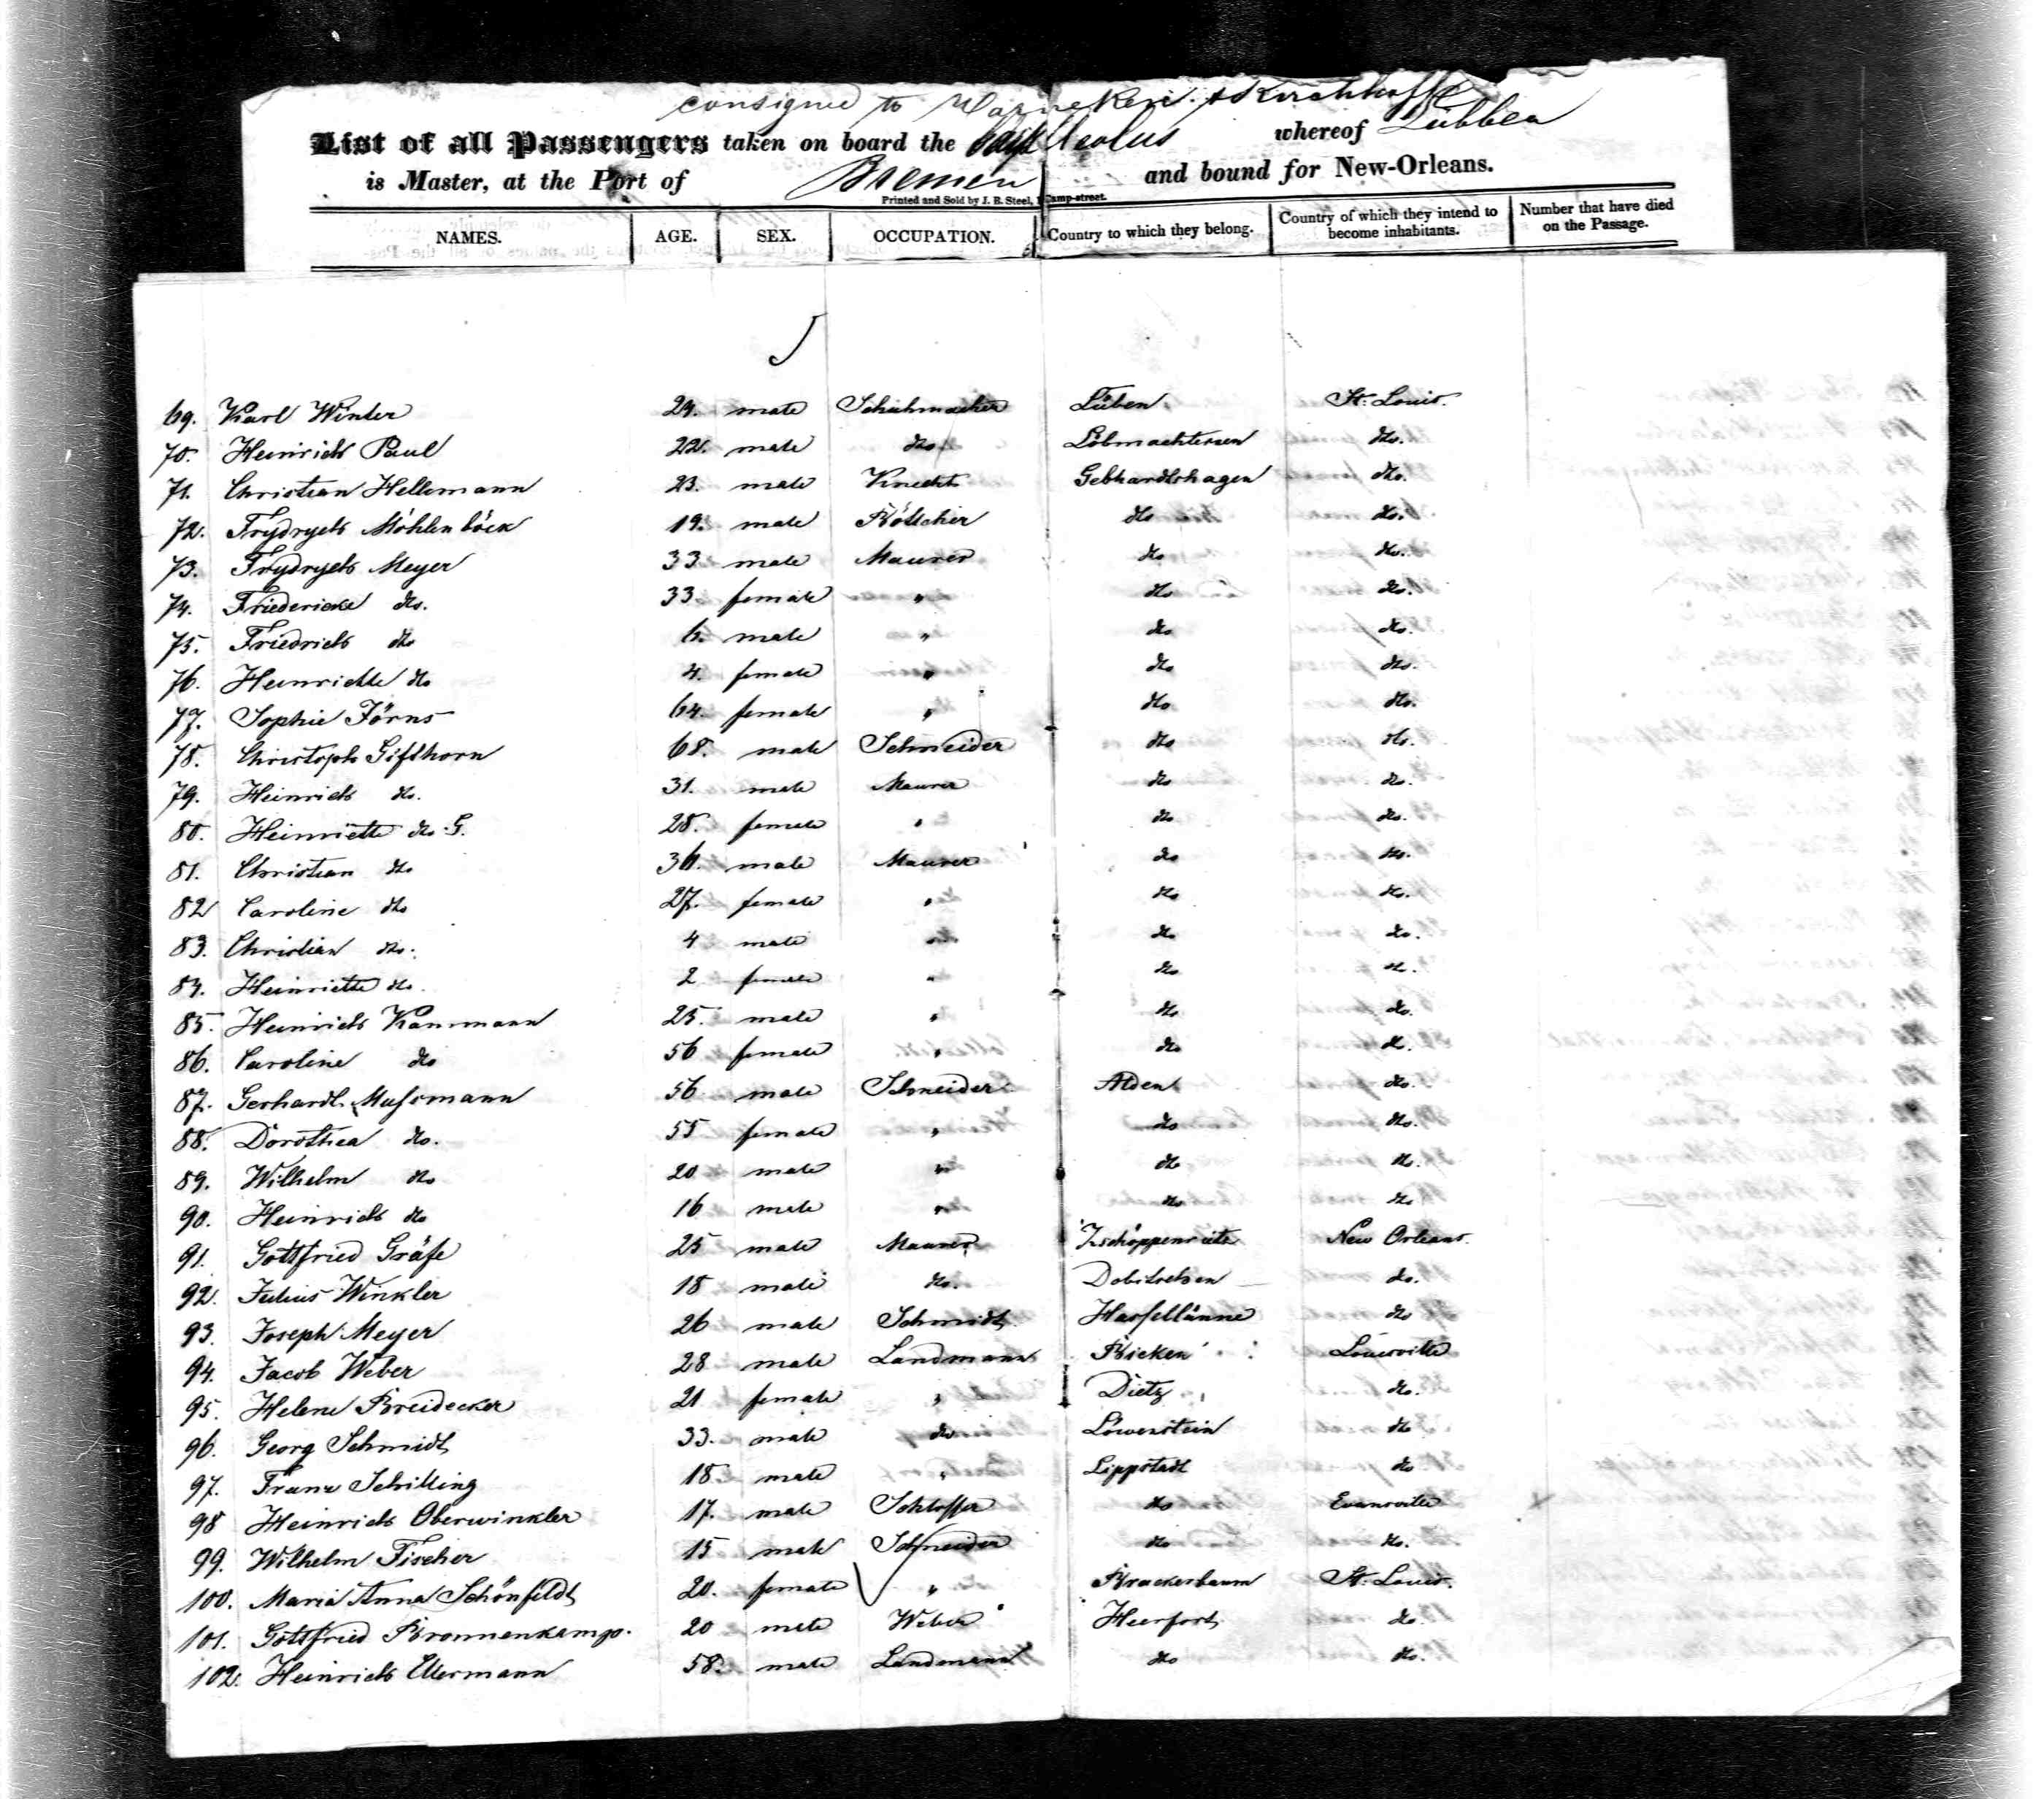 consigned to Warneken & Kirchhoff
List of all Passengers taken on board the Ship Aeolus whereof Lübben
is Master, at the Port of Bremen and bound for New-Orleans.
Printed and Sold by J. B. Steel, Camp-street.
NAMES. AGE. SEX. OCCUPATION. Country to which they belong. Country of which they intend to become inhabitants. Number that have died on the Passage.
69. Karl Winter 29. male Schuhmacher Lüben St. Louis.
70. Heinrich Paul 22. male do Löbmachtersen do.
71. Christian Hellemann 23. male Knecht Gebhardtshagen do.
72. Frydrych Möhlenböck 19. male Böttcher do do.
73. Frydrych Meyer 33 male Maurer do do.
74. Friedericke do. 33 female " do do.
75. Friedrich do 6. male " do do.
76. Heinriette do 4. female " do do.
77. Sophie Jörns 64. female " do do.
78. Christoph Gifthorn 68. male Schneider do do.
79. Heinrich do. 31. male Maurer do do.
80. Heinriette do. G. 28. female " do do.
81. Christian do 36. male Maurer do do.
82 Caroline do 27. female " do do.
83. Christian do. 4 male do do.
84. Heinriette do. 2 female " do do.
85. Heinrich Kammann 25. male " do do.
86. Caroline do 56 female " do do.
87. Gerhardt Mussmann 56 male Schneider Alden do.
88. Dorothea do. 55 female " do do.
89. Wilhelm do 20 male " do do.
90. Heinrich do 16 male " do do
91. Gottfried Gräfe 25 male Maurer Zschöppenritz New Orleans.
92. Julius Winkler 18 male do. Dobitschen do.
93. Joseph Meyer 26 male Schmidt Hassellünne do
94. Jacob Weber 28 male Landmann Bicken Louisville
95. Helene Breidecker 21 female " Dietz do.
96. Georg Schmidt 33. male do Löwenstein do
97. Franz Schilling 18 male " Lippstadt do
98 Heinrich Oberwinkler 17. male Schlosser do Evansville
99. Wilhelm Fischer 15 male Schneider do do.
100. Maria Anna Schönfeldt 20. female " Brackerbaum St. Louis.
101. Gottfried Bronnenkamp. 20 male Weber Heerfort do.
102. Heinrich Ellermann 58. male Landmann do do.